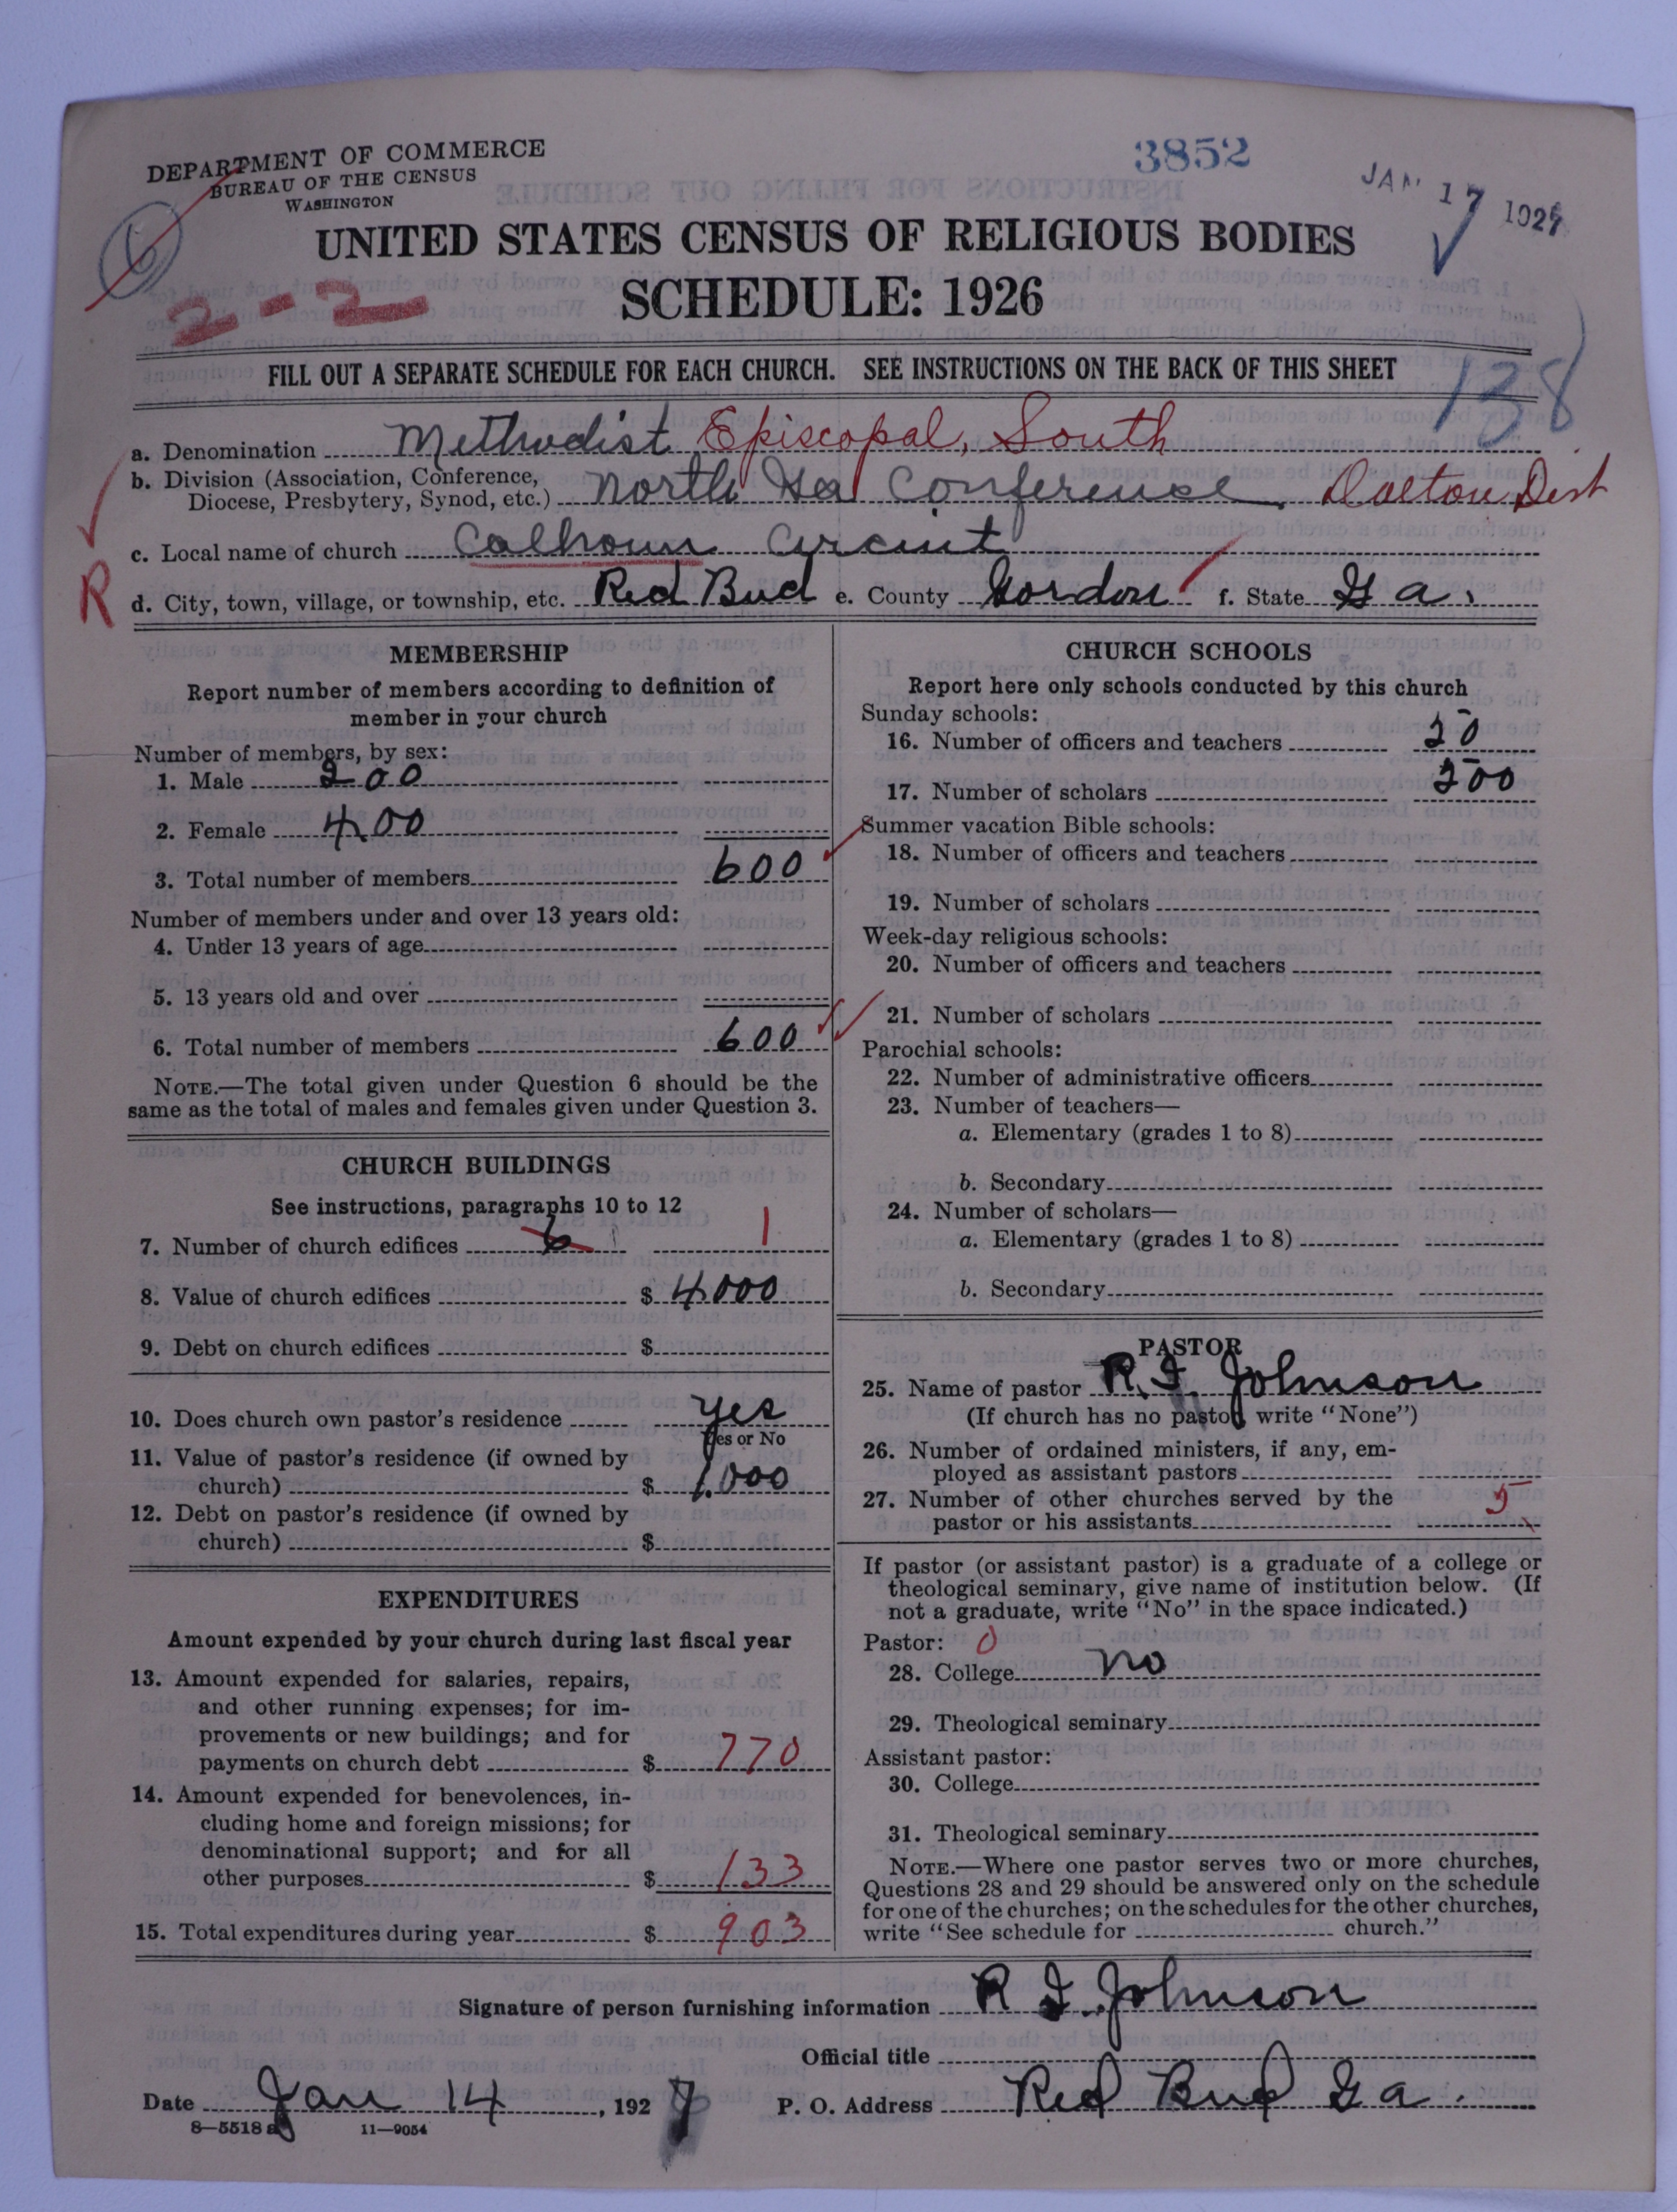 DEPARTMENT OF COMMERCE
BUREAU OF THE CENSUS
WASHINGTON
3852
JAN 17 1927
6
2-2
UNITED STATES CENSUS OF RELIGIOUS BODIES
SCHEDULE: 1926
138
FILL OUT A SEPARATE SCHEDULE FOR EACH CHURCH. SEE INSTRUCTIONS ON THE BACK OF THIS SHEET
a. Denomination Methodist Episcopal, South
b. Division (Association, Conference,
Diocese, Presbytery, Synod, etc.) North Ga Conference Dalton Dist
c. Local name of church Calhoun Circuit
R
d. City, town, village, or township, etc. Red Bud e. County Gordon f. State Ga.
MEMBERSHIP
Report number of members according to definition of
member in your church
Number of members, by sex:
1. Male 200
2. Female 400
3. Total number of members 600
Number of members under and over 13 years old:
4. Under 13 years of age
5. 13 years old and over
6. Total number of members 600
NOTE.—The total given under Question 6 should be the
same as the total of males and females given under Question 3.
CHURCH BUILDINGS
See instructions, paragraphs 10 to 12
7. Number of church edifices 6 1
8. Value of church edifices $ 4000
9. Debt on church edifices $
10. Does church own pastor's residence yes
Yes or No
11. Value of pastor's residence (if owned by
church) $ 1,000
12. Debt on pastor's residence (if owned by
church) $
EXPENDITURES
Amount expended by your church during last fiscal year
13. Amount expended for salaries, repairs,
and other running expenses; for im-
provements or new buildings; and for
payments on church debt $ 770
14. Amount expended for benevolences, in-
cluding home and foreign missions; for
denominational support; and for all
other purposes $ 133
15. Total expenditures during year $ 903
CHURCH SCHOOLS
Report here only schools conducted by this church
Sunday schools:
16. Number of officers and teachers
17. Number of scholars
Summer vacation Bible schools:
18. Number of officers and teachers
19. Number of scholars
Week-day religious schools:
20. Number of officers and teachers
21. Number of scholars
Parochial schools:
22. Number of administrative officers
23. Number of teachers—
a. Elementary (grades 1 to 8)
b. Secondary
24. Number of scholars—
a. Elementary (grades 1 to 8)
b. Secondary
PASTOR
25. Name of pastor R. I. Johnson
(If church has no pastor, write "None")
26. Number of ordained ministers, if any, em-
ployed as assistant pastors
27. Number of other churches served by the
pastor or his assistants 5
If pastor (or assistant pastor) is a graduate of a college or
theological seminary, give name of institution below. (If
not a graduate, write "No" in the space indicated.)
Pastor: 0
28. College no
29. Theological seminary
Assistant pastor:
30. College
31. Theological seminary
NOTE.—Where one pastor serves two or more churches,
Questions 28 and 29 should be answered only on the schedule
for one of the churches; on the schedules for the other churches,
write "See schedule for church."
Signature of person furnishing information R I Johnson
Official title
Date Jan 14, 1927 P. O. Address Red Bud Ga.
8—5518 a 11—9054